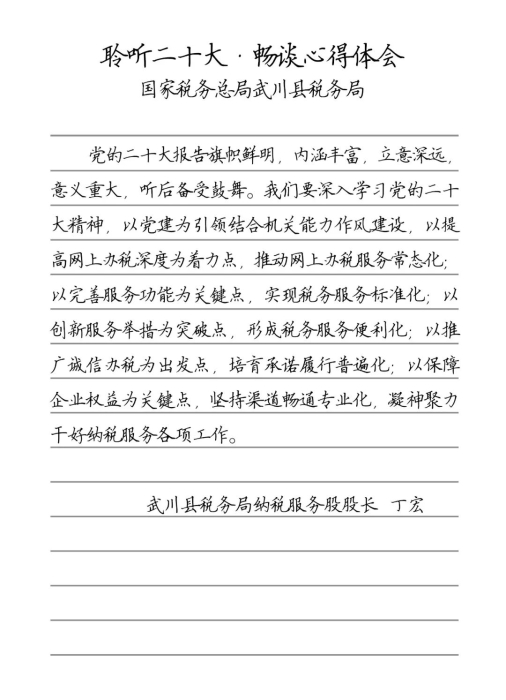 聆听二十大·畅谈心得体会
国家税务总局武川县税务局
党的二十大报告旗帜鲜明，内涵丰富，立意深远，
意义重大，听后备受鼓舞。我们要深入学习党的二十
大精神，以党建为引领结合机关能力作风建设，以提
高网上办税深度为着力点，推动网上办税服务常态化；
以完善服务功能为关键点，实现税务服务标准化；以
创新服务举措为突破点，形成税务服务便利化；以推
广诚信办税为出发点，培育承诺履行普遍化；以保障
企业权益为关键点，坚持渠道畅通专业化，凝神聚力
干好纳税服务各项工作。
武川县税务局纳税服务股股长 丁宏